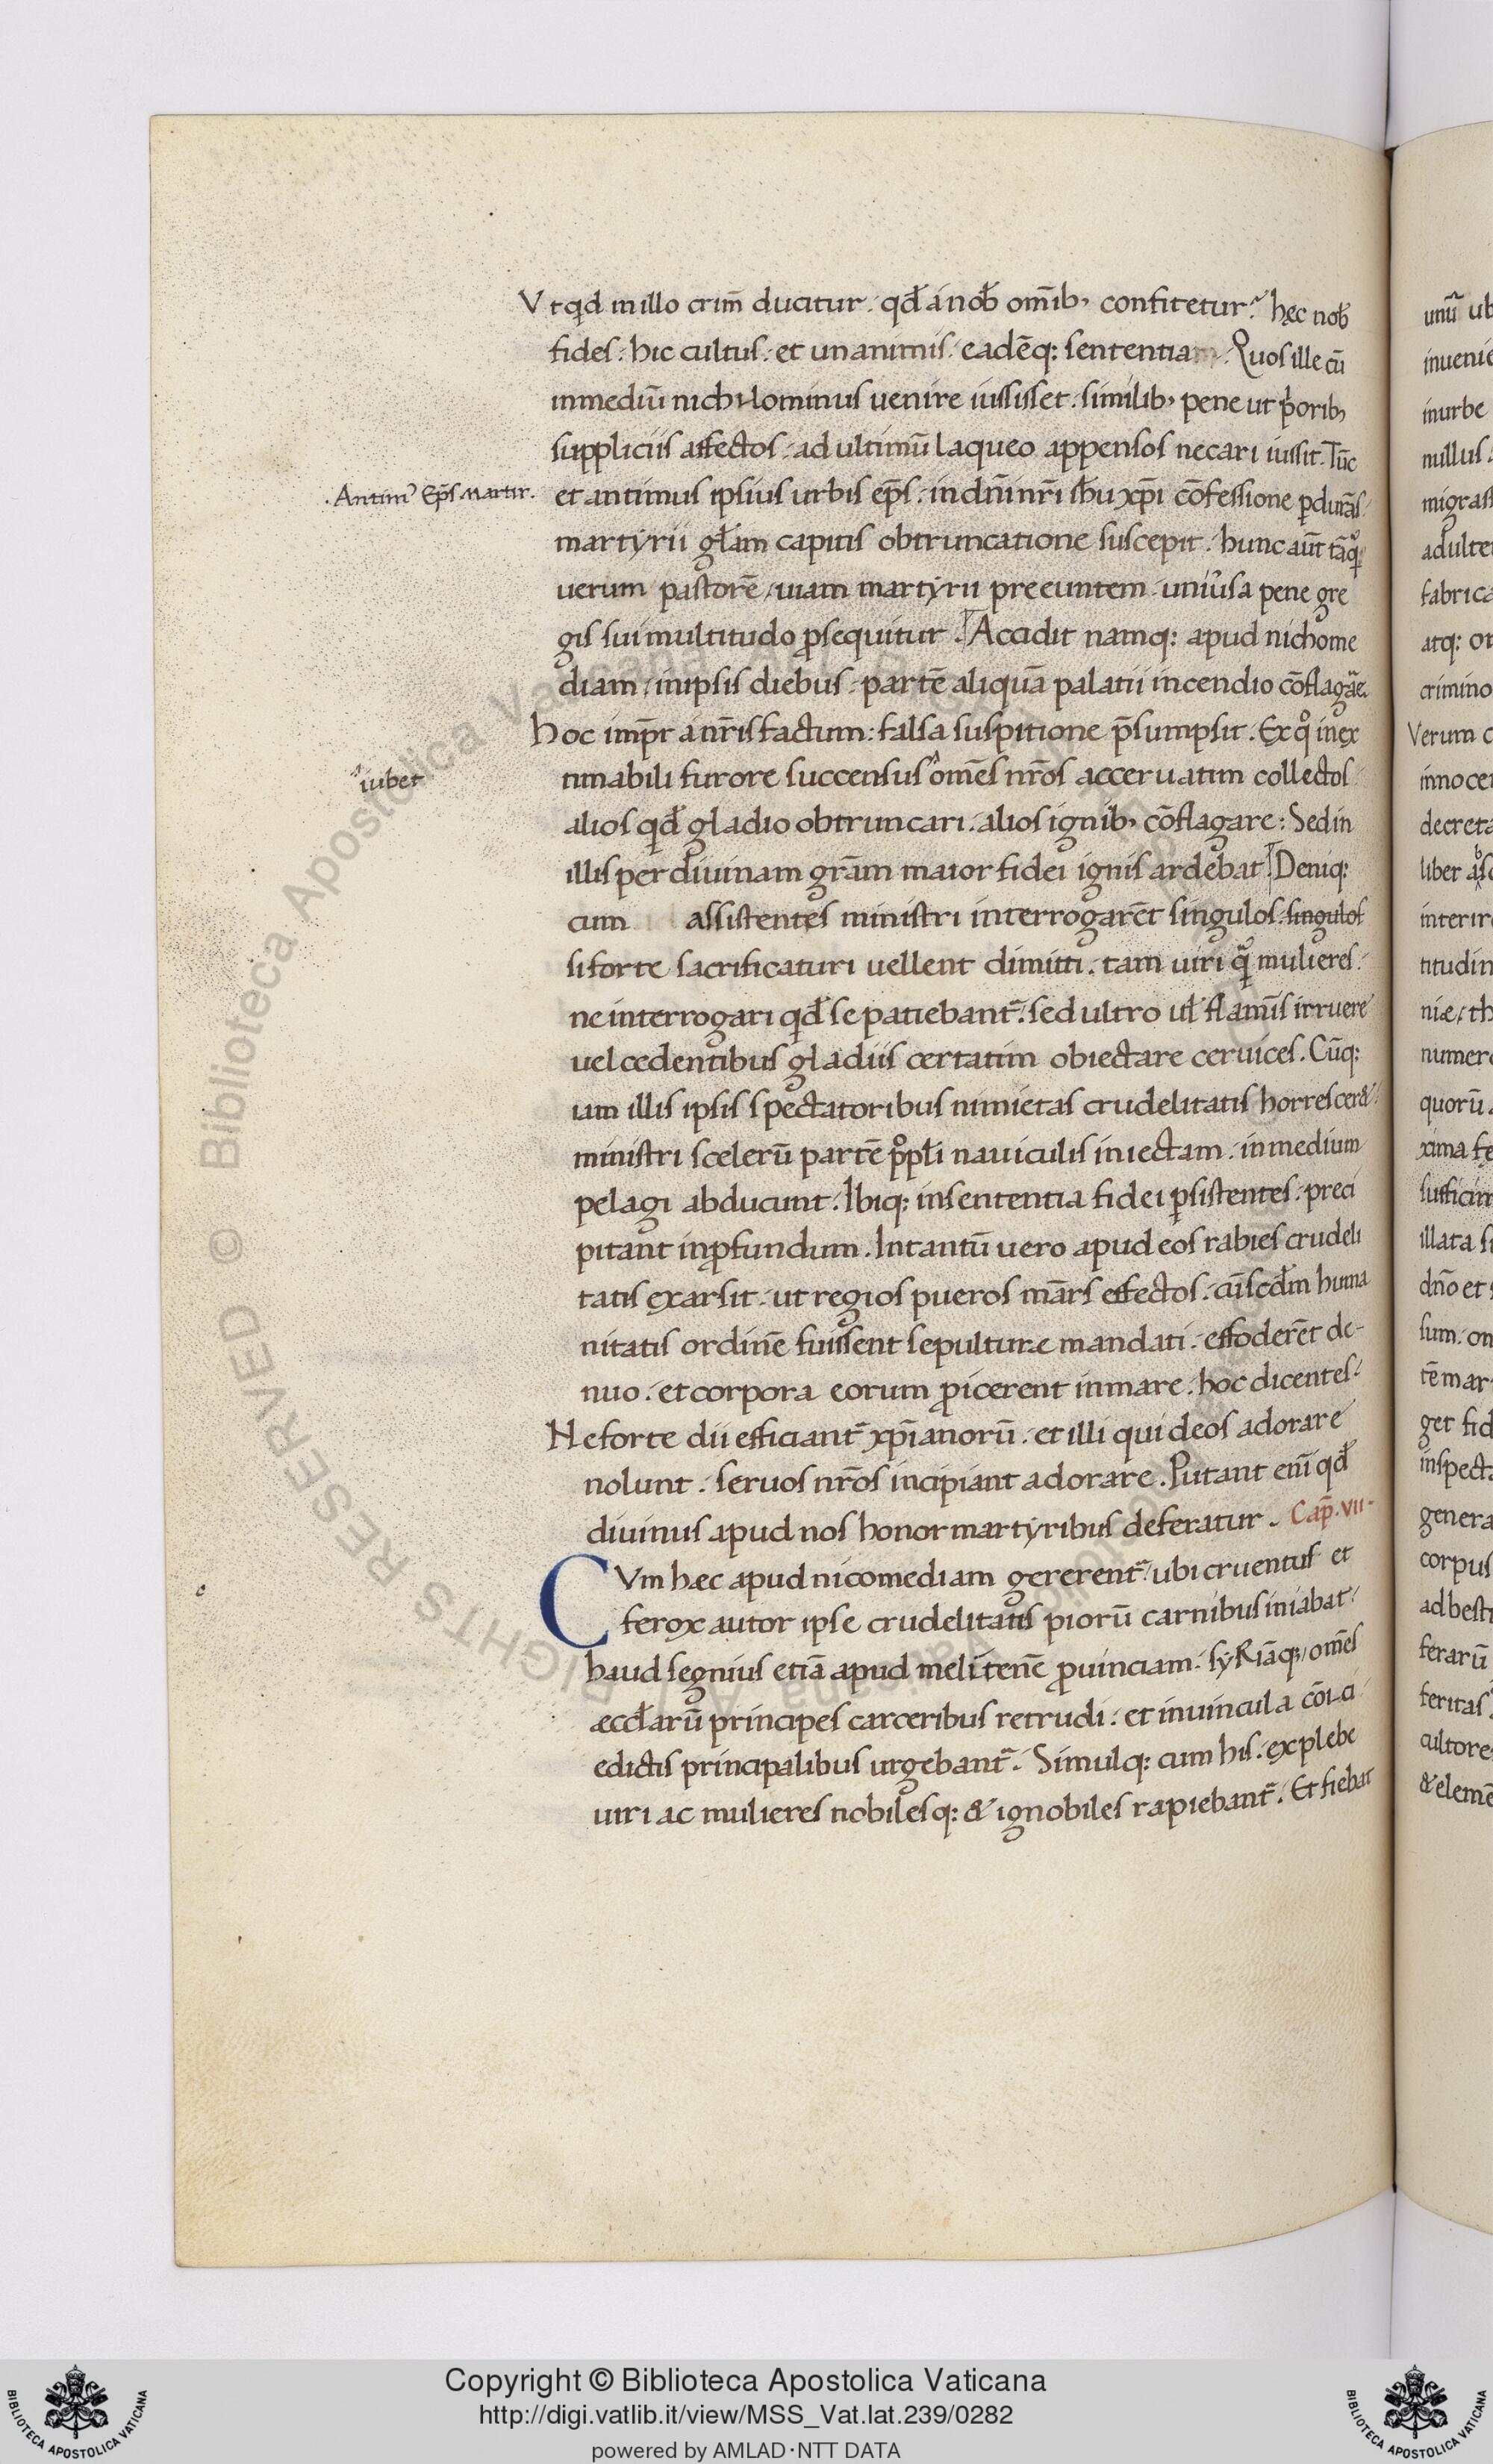 Vt qd in illo crim̄ ducitur. qđ a nob̄ om̄ib; confitetur? hęc nob̄
fides. hic cultus. et unanimis. eadēq; sententia. Quos ille cū
in mediū nichilominus uenire iussisset. similib; pene ut p̄orib;
suppliciis affectos. ad ultimū laqueo appensos necari iussit. Tūc
.Antim᾿ Ep̄s Martir.
et antimus ipsius urbis ep̄s. in dn̄i nr̄i ih̄u xp̄i cōfessione ꝑdurās
martyrii gl̄am capitis obtruncatione suscepit. hunc aūt tāqͦ
uerum pastorē, uiam martyrii preeuntem. uniu᾿sa pene gre
gis sui multitudo ꝓsequitur. Accidit namq; apud nichome
diam, in ipsis diebus. partē aliquā palatii incendio cōflag̃re.
hoc imꝑr a nr̄is factum: falsa suspitione p̄sumpsit. Ex qͦ inex
iubet
timabili furore succensus om̄es nr̄os aceruatim collectos
alios qđ gladio obtruncari. alios ignib; cōflagare: Sed in
illis per diuinam gr̄am maior fidei ignis ardebat. Deniq;
cum assistentes ministri interrogarēt singulos. singulos
si forte sacrificaturi uellent dimitti. tam uiri qͣ mulieres.
ne interrogari qđ se patiebant᷑. sed ultro ul̄ flam̄is irruere
uel cedentibus gladiis certatim obiectare ceruices. Cūq;
iam illis ipsis spectatoribus nimietas crudelitatis horrescer&.
ministri scelerū partē ppl̄i nauiculis iniectam. in medium
pelagi abducunt. Ibiq; in sententia fidei ꝑsistentes. preci
pitant in ꝓfundum. Intantū uero apud eos rabies crudeli
tatis exarsit. ut regios pueros mār̄s effectos. cū scđm huma
nitatis ordinē fuissent sepulturæ mandati. effoderēt de-
nuo. et corpora eorum ꝓicerent in mare. hoc dicentes.
Ne forte dii efficiant᷑ xp̄ianorū. et illi qui deos adorare
nolunt. seruos nr̄os incipiant adorare. Putant eni᷒ qđ
diuinus apud nos honor martyribus deferatur. Cap̄. VII.
CVm hæc apud nicomediam gererent᷑. ubi cruentus et
ferox autor ipse crudelitatis piorū carnibus iniabat.
haud segnius etiā apud melitenē ꝓuinciam. syRiāq; om̄es
æccl̄arū principes carceribus retrudi. et in uincula cōici
edictis principalibus urgebant᷑. Simulq; cum his. ex plebe
uiri ac mulieres nobilesq; & ignobiles rapiebant᷑. Et fiebat
Copyright © Biblioteca Apostolica Vaticana
http://digi.vatlib.it/view/MSS_Vat.lat.239/0282
powered by AMLAD·NTT DATA